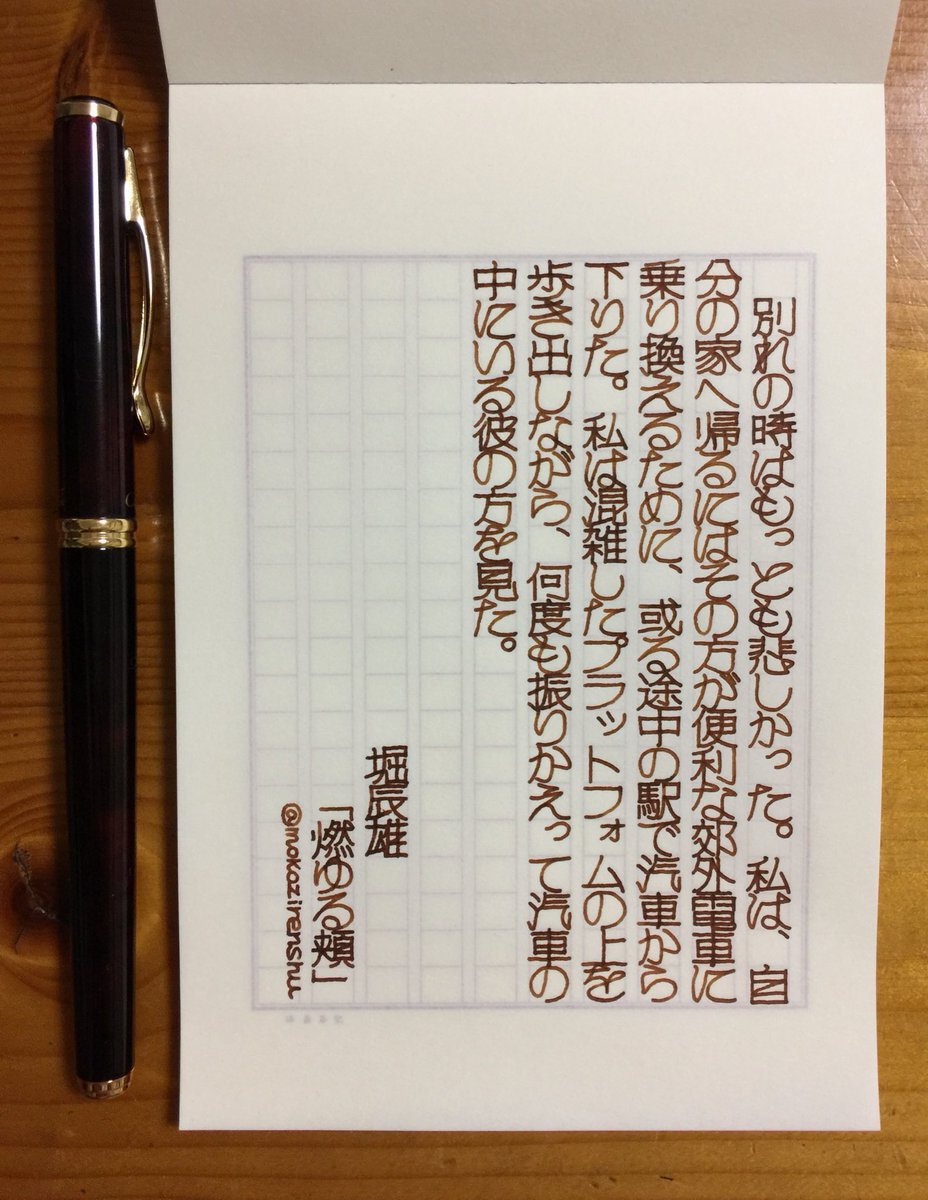 別れの時はもっとも悲しかった。私は、自
分の家へ帰るにはその方が便利な郊外電車に
乗り換えるために、或る途中の駅で汽車から
下りた。私は混雑したプラットフォムの上を
歩き出しながら、何度も振りかえって汽車の
中にいる彼の方を見た。
堀辰雄
「燃ゆる頬」
@mokozirenshu